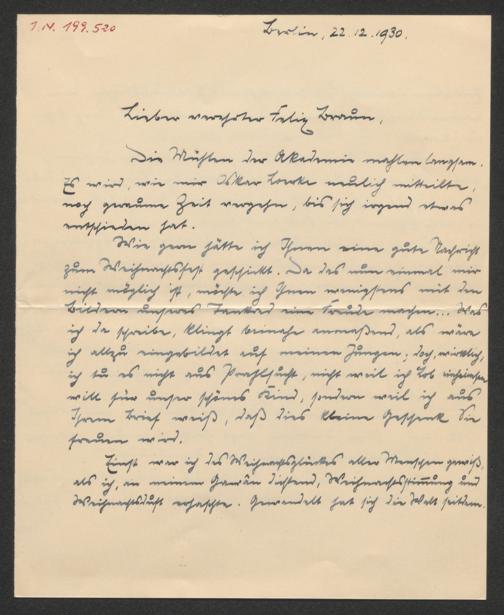 I.N. 199.520
Berlin, 22.12.1930.
Lieber verehrter Felix Braun,
Die Mühlen der Akademie mahlen langsam.
Es wird, wie mir Oskar Loerke neulich mitteilte,
noch geraume Zeit vergehn, bis sich irgend etwas
entschieden hat.
Wie gern hätte ich Ihnen eine gute Nachricht
zum Weihnachtsfest geschickt. Da das nun einmal mir
nicht möglich ist, möchte ich Ihnen wenigstens mit den
Bildern unseres Tankred eine Freude machen... Was
ich da schreibe, klingt beinahe anmaßend, als wäre
ich allzu eingebildet auf meinen Jungen, doch, wirklich,
ich tu es nicht aus Prahlsucht, nicht weil ich Lob einheimsen
will für unser schönes Kind, sondern weil ich aus
Ihrem Brief weiß, daß dies kleine Geschenk Sie
freuen wird.
Einst war ich des Weihnachtsglückes aller Menschen gewiß,
als ich, an meinem dichtend, Weihnachtsstimmung und
Weihnachtsduft erhaschte. Gewandelt hat sich die Welt seitdem.